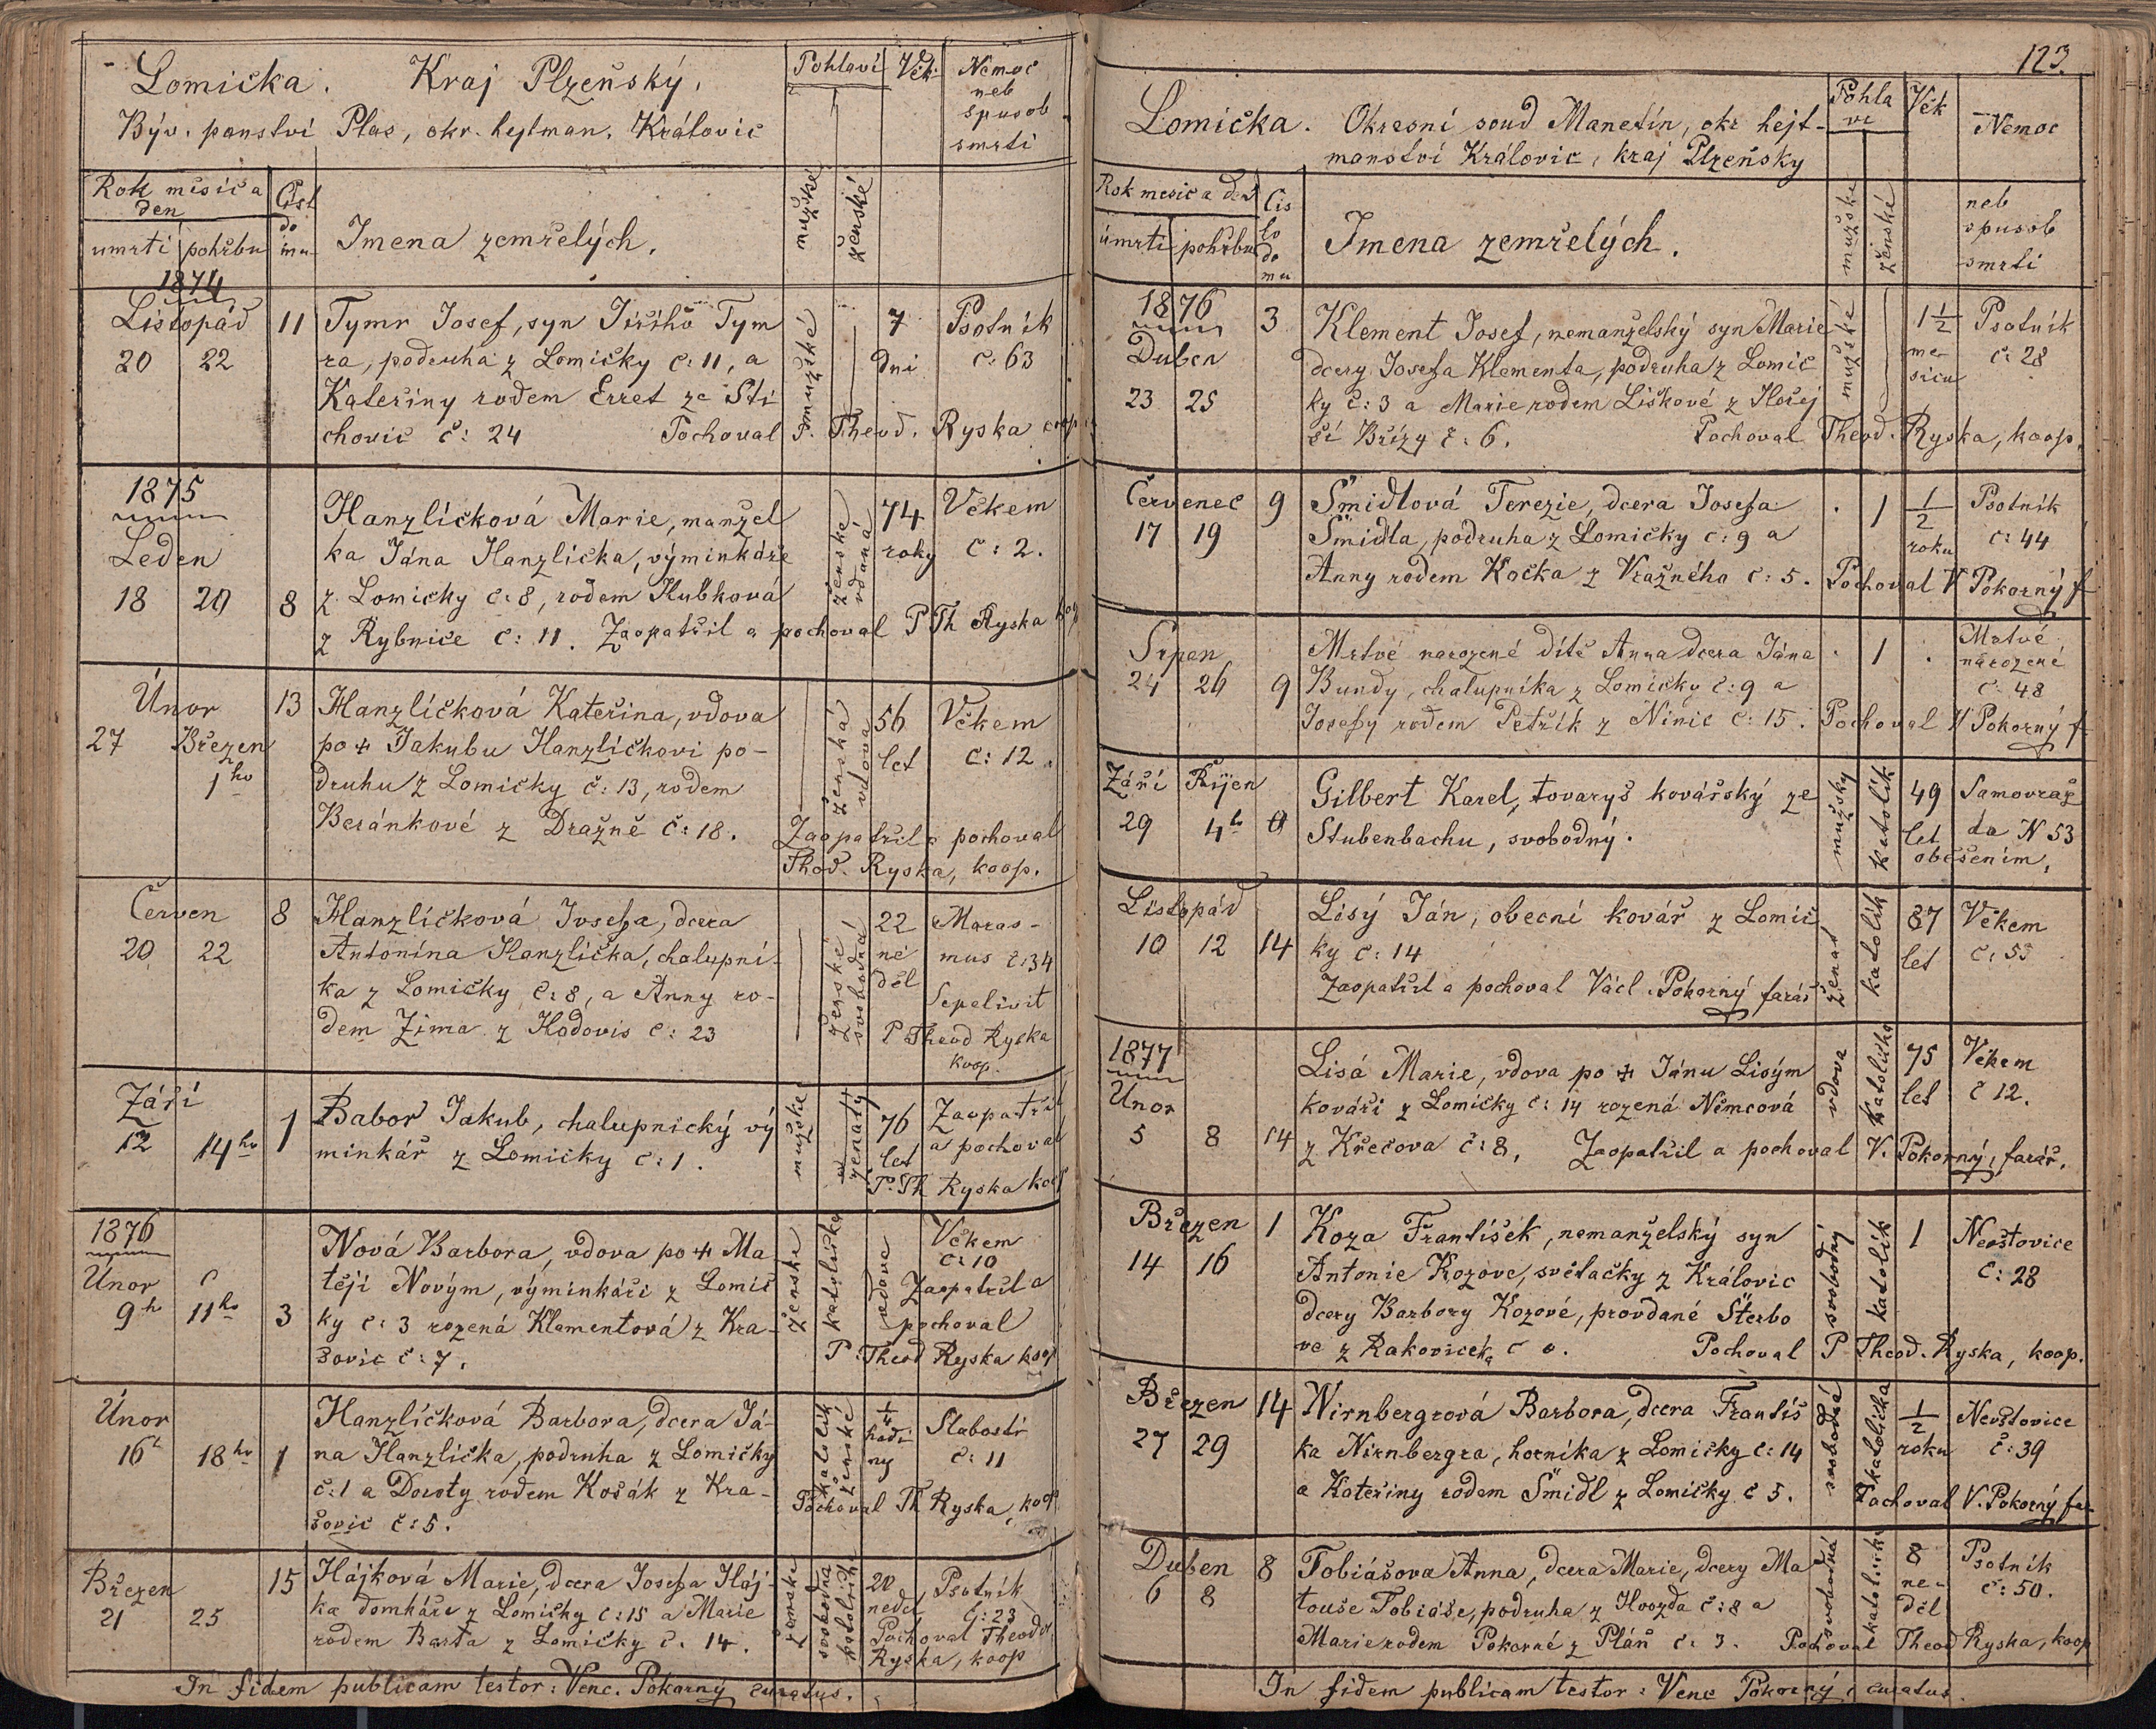 Lomička. Kraj Plzeňský.
Býv. panství Plas, okr. hejtman. Královic
Pohlaví
Věk
Nemoc
neb
spusob
smrti
Rok měsíc a
den
umrtí pohřbu
Čísl
do
mu
Imena zemřelých.
mužské
ženské
1874
Listopád 11 Tymr Josef, syn Jiřího Tym
20 22 ra, podruha z Lomičky č: 11, a
Kateřiny rodem Erret ze Sti
chovic č: 24 Pochoval P. Theod. Ryska coop
mužské
7
dni
Psotník
č: 63
1875
Leden
18 20 8
Hanzlíčková Marie, manžel
ka Jána Hanzlíčka, výminkáře
z Lomičky č: 8, rodem Hubková
z Rybnice č: 11. Zaopatřil a pochoval P Th Ryska koop
ženské
vdaná
74
roky
Věkem
č: 2.
Únor 13 Hanzlíčková Kateřina, vdova
27 Březen po + Jakubu Hanzlíčkovi po-
1ho druhu z Lomičky č: 13, rodem
Beránkové z Dražně č: 18.
ženská
vdova
56
let
Věkem
č: 12.
Zaopatřil a pochoval
Theod. Ryska, koop.
Červen 8 Hanzlíčková Josefa, dcera
20 22 Antonína Hanzlíčka, chalupní-
ka z Lomičky č: 8, a Anny ro-
dem Zima z Hodovis č: 23
ženské
svobodná
22
né
děl
Maras-
mus č: 34
Sepelivit
P Theod Ryska
koop.
Září
12 14ho 1
Babor Jakub, chalupnický vý
minkář z Lomičky č: 1.
mužské
ženatý
76
let
Zaopatřil
a pochoval
P. Th Ryska koop
1876
Únor
9ho 11ho 3
Nová Barbora, vdova po + Ma
těji Novým, výminkáři z Lomič
ky č: 3 rozená Klementová z Kra-
šovic č: 7.
ženské
katolička
vdova
Věkem
č: 10
Zaopatřil a
pochoval
P. Theod Ryska koop
Únor
16ho 18ho 1
Hanzlíčková Barbora, dcera Já-
na Hanzlíčka, podruha z Lomičky
č: 1 a Doroty rodem Košák z Kra-
šovic č: 5.
katolík
ženské
1/4
hodi
ny
Slabostí
č: 11
Pochoval Th Ryska, koop
Březen
21 25 15
Hájková Marie, dcera Josefa Háj-
ka domkáře z Lomičky č: 15 a Marie
rodem Barta z Lomičky č. 14.
ženské
svobodná
katolička
20
neděl
Psotník
č: 23
Pochoval Theodor
Ryska, koop
In fidem publicam testor: Venc. Pokorný curatus.
123.
Lomička. Okresní soud Manetín, okr hejt-
manství Královic, kraj Plzeňsky
Pohla
vi
Věk
Nemoc
neb
spusob
smrti
Rok mesic a den
úmrti pohřbu
Čís
lo
do
mu
Imena zemřelých.
mužské
ženské
1876
Duben
23 25 3
Klement Josef, nemanželský syn Marie
dcery Josefa Klementa, podruha z Lomič
ky č: 3 a Marie rodem Liškové z Hořej
ší Břízy č: 6. Pochoval Theod. Ryska, koop.
mužské
1 1/2
mě-
síců
Psotník
č: 28
Červenec 9 Šmidlová Terezie, dcera Josefa
17 19 Šmidla, podruha z Lomičky č: 9 a
Anny rodem Kočka z Vražného č: 5. Pochoval V Pokorný f
1
1/2
roku
Psotník
č: 44
Srpen
24 26 9
Mrtvé narozené dítě Anna dcera Jána
Bundy, chalupníka z Lomičky č: 9 a
Josefy rodem Petřík z Ninic č: 15. Pochoval V Pokorný f
1
Mrtvé
narozené
č: 48
Září Říjen
29 4ho 0
Gilbert Karel, tovaryš kovářský ze
Stubenbachu, svobodný.
mužsky
katolík
49
let
Samovraž
da N 53
oběšením.
Listopád
10 12 14
Lisý Ján, obecní kovář z Lomič
ky č: 14
Zaopatřil a pochoval Václ. Pokorný farář
ženat
katolík
87
let
Věkem
č: 55
1877
Únor
5 8 14
Lisá Marie, vdova po + Jánu Lisým
kováři z Lomičky č: 14 rozená Němcová
z Křečova č: 8, Zaopatřil a pochoval V. Pokorný, farář.
vdova
katolička
75
let
Věkem
č 12.
Březen 1 Koza František, nemanželský syn
14 16 Antonie Kozove, světačky z Královic
dcery Barbory Kozové, provdané Šterbo
ve z Rakovicek č 0. Pochoval P Theod. Ryska, koop.
svobodný
katolík
1
Neštovice
č: 28
Březen 14 Nirnbergrová Barbora, dcera Františ
27 29 ka Nirnbergra, horníka z Lomičky č: 14
a Kateřiny rodem Šmidl z Lomičky č 5.
svobodná
katolička
1/2
roku
Neštovice
č: 39
Pochoval V. Pokorný far
Duben 8 Tobiášova Anna, dcera Marie, dcery Ma
6 8 touše Tobiáše, podruha z Hvozda č: 8 a
Marie rodem Pokorné z Pláň č: 3. Pochoval Theod Ryska, koop
svobodná
katolička
8
ne-
děl
Psotník
č: 50.
In fidem publicam testor: Venc Pokorný, curatus.